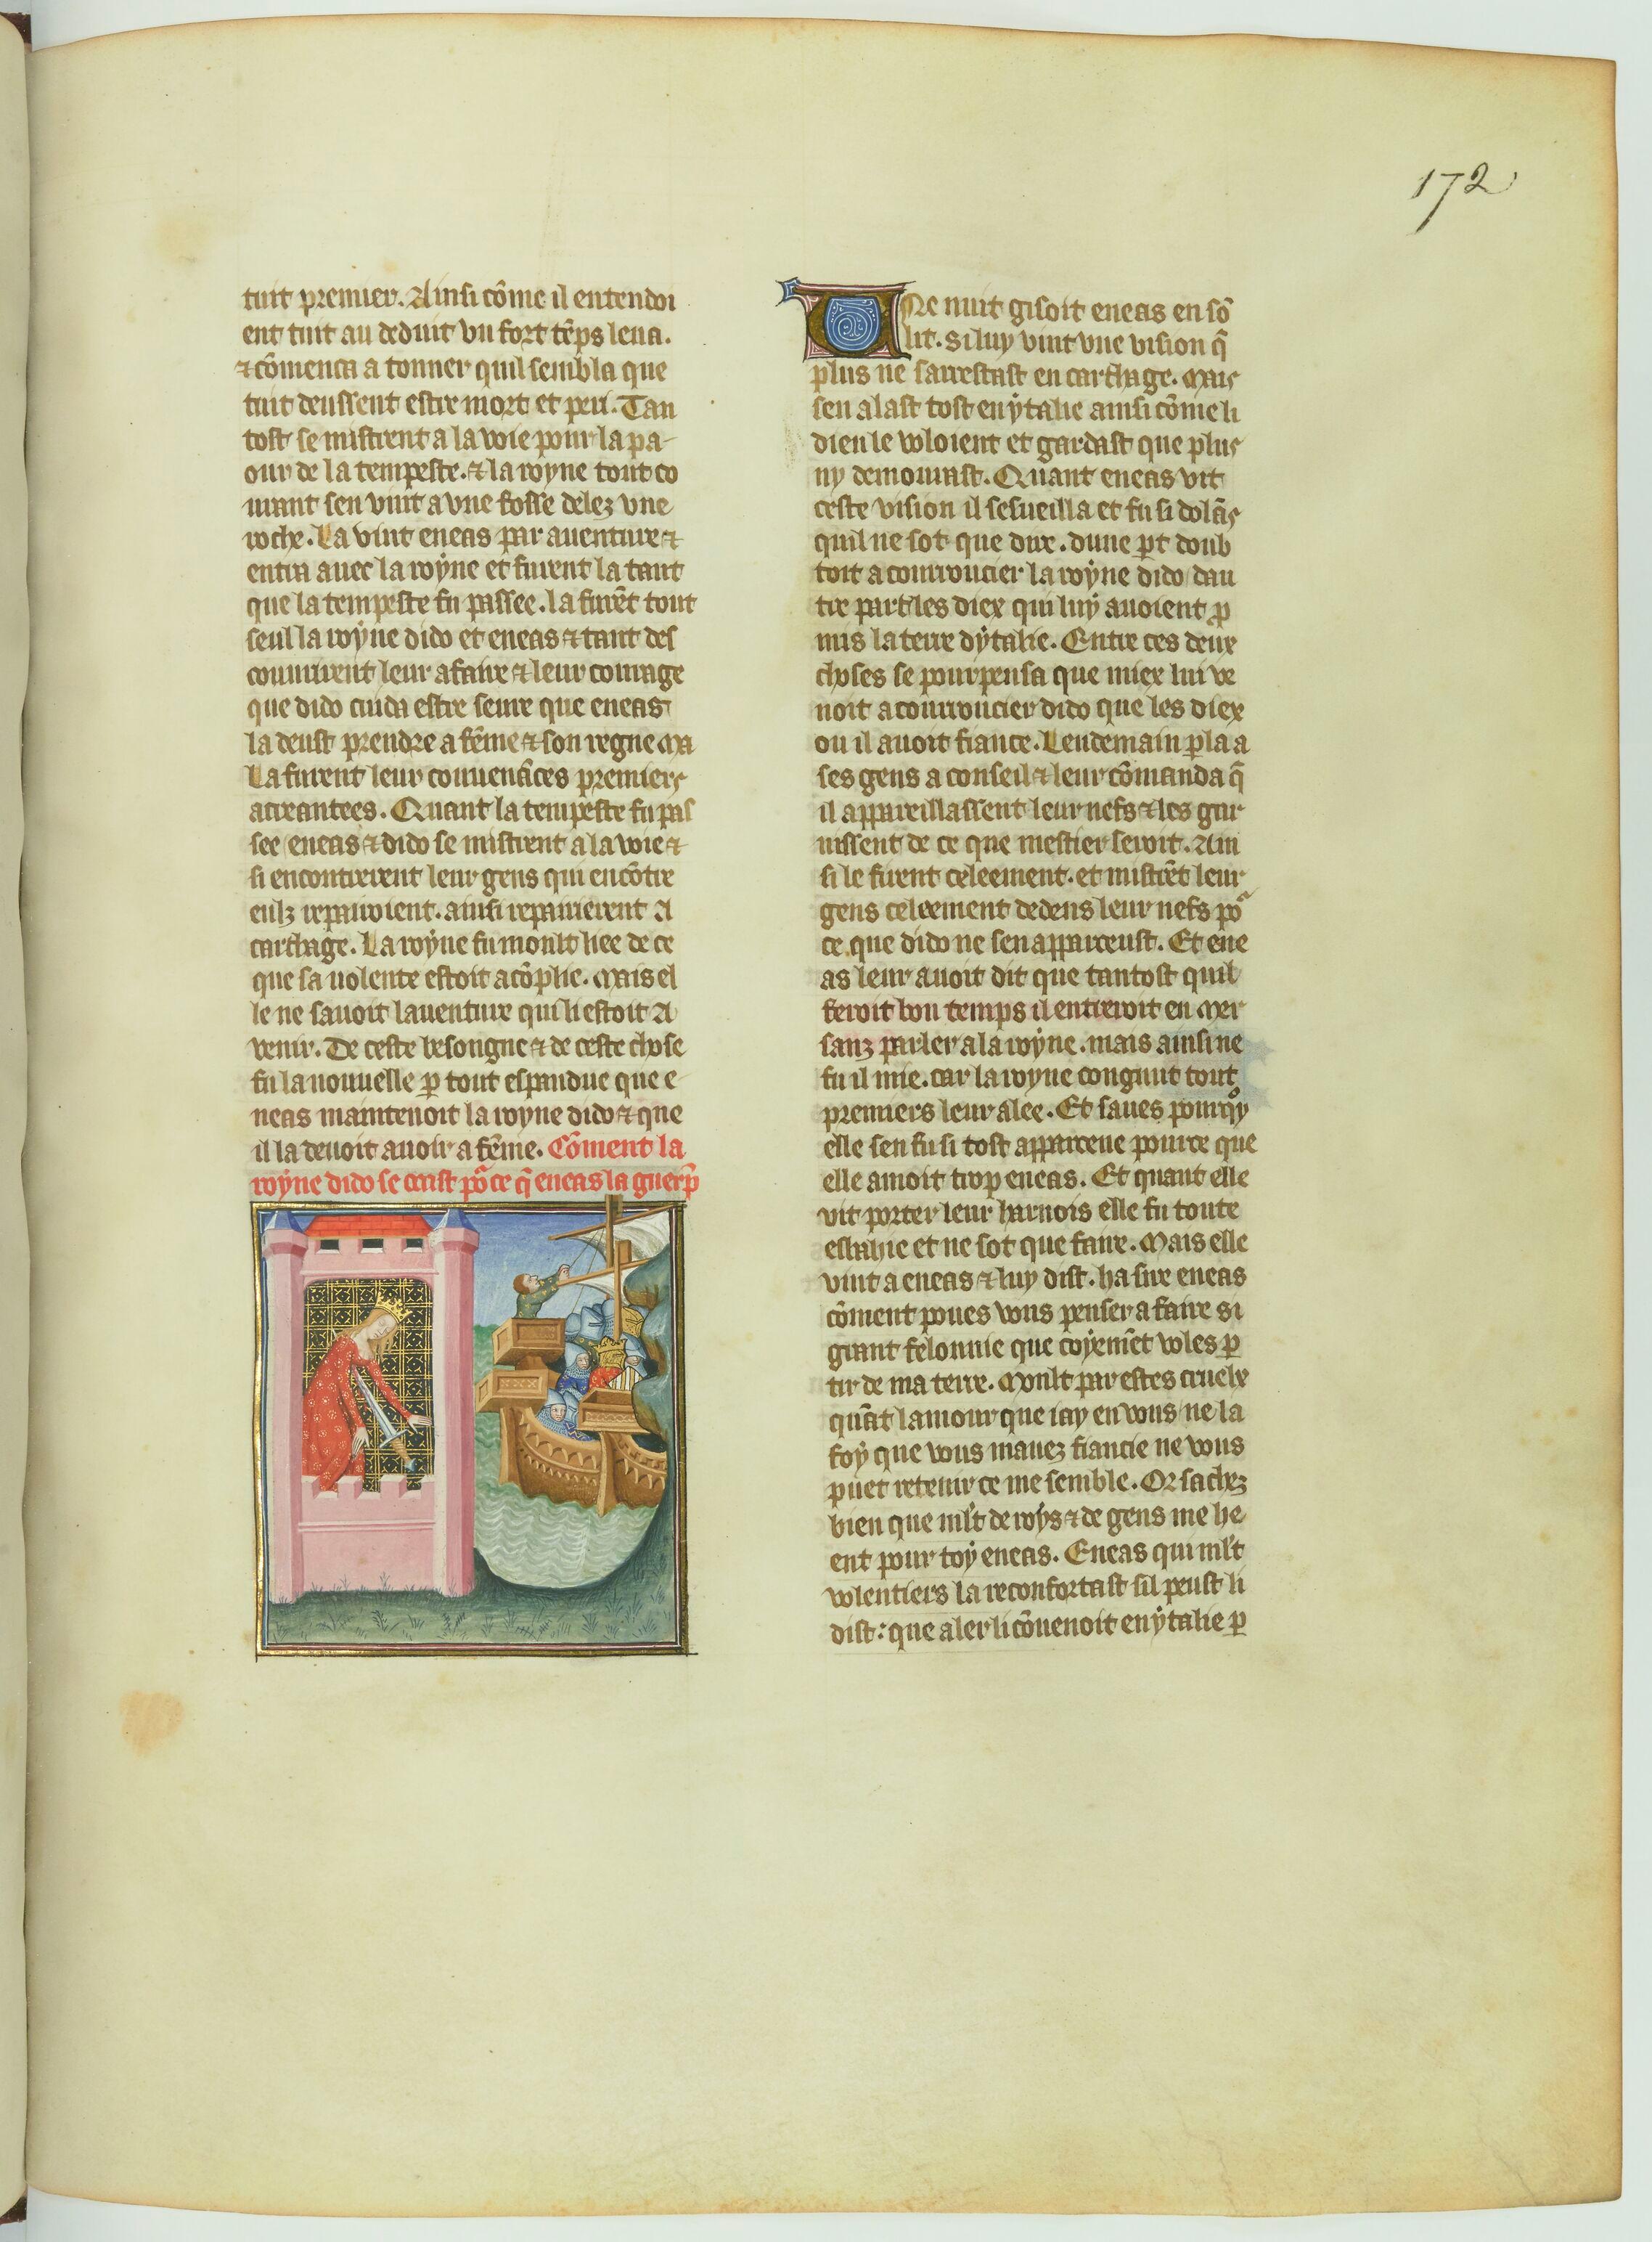 172
tuit premier. Ainsi cōme il entendoi
ent tuit au deduit vn fort tēps leua.
⁊ cōmenca a tonner quil sembla que
tuit deussent estre mort et peri. Tan
tost se mistrent a la voie pour la pa-
our de la tempeste. ⁊ la royne tout co
urant sen vint a vne fosse delez vne
roche. La vint eneas par auenture ⁊
entra auec la royne et furent la tant
que la tempeste fu passee. la furēt tout
seul la royne dido et eneas ⁊ tant des
couurirent leur afaire ⁊ leur courage
que dido cuida estre seure que eneas
la deust prendre a fēme ⁊ son regne Ma
La furent leur conuenāces premiers
atreantees. Quant la tempeste fu pas
see eneas ⁊ dido se mistrent a la voie ⁊
si encontrerent leur gens qui encōtre
eulz repairoient. ainsi repairierent A
carthage. La royne fu moult liee de ce
que sa uolente estoit acōplie. Mais el
le ne sauoit lauenture qui li estoit A
venir. De ceste besongne ⁊ de ceste chose
fu la nouuelle ꝑ tout espandue que e-
neas maintenoit la royne dido ⁊ que
il la deuoit auoir a fēme. Cōment la
royne dido se occist poᷣ ce q̄ eneas la guerp̄
Une nuit gisoit eneas en sō
lit. Si luy vint vne vision q̄
plus ne sarrestast en carthage. Mais
sen alast tost en ytalie ainsi cōme li
dieu le vloient et gardast que plus
ny demourast. Quant eneas vit
ceste vision il sesueilla et fu si dolās
quil ne sot que dire. dune ꝑt doub
toit a courroucier la royne dido dau
tre part les diex qui luy auoient ꝓ
mis la terre dytalie. Entre ces deux
choses se pourpensa que miex lui ve
noit a courroucier dido que les diex
ou il auoit fiance. Lendemain ꝑla a
ses gens a conseil ⁊ leur cōmanda q̄
il appareillassent leur nefs ⁊ les gar
nissent de ce que mestier seroit. Ain
si le firent celeement. et mistrēt leur
gens celeement dedens leur nefs poᷣ
ce que dido ne sen apparceust. Et ene
as leur auoit dit que tantost quil
feroit bon temps il entreroit en Mer
sanz parler a la royne. mais ainsi ne
fu il mie. car la royne congnut tout
premiers leur alee. Et saues pourqͦy
elle sen fu si tost apparceue pource que
elle amoit trop eneas. Et quant elle
vit porter leur harnois elle fu toute
esbahie et ne sot que faire. Mais elle
vint a eneas ⁊ luy dist. ha sire eneas
cōment poues vous penser a faire si
grant felonnie que coyemēt voles ꝑ
tir de ma terre. Moult par estes cruelx
quāt lamour que iay en vous ne la
foy que vous mauez fiancie ne vous
puet retenir ce me semble. Or sachez
bien que ml't de roys ⁊ de gens me he
ent pour toy eneas. Eneas qui ml't
volentiers la reconfortast sil peust li
dist: que aler li cōuenoit en ytalie ꝑ